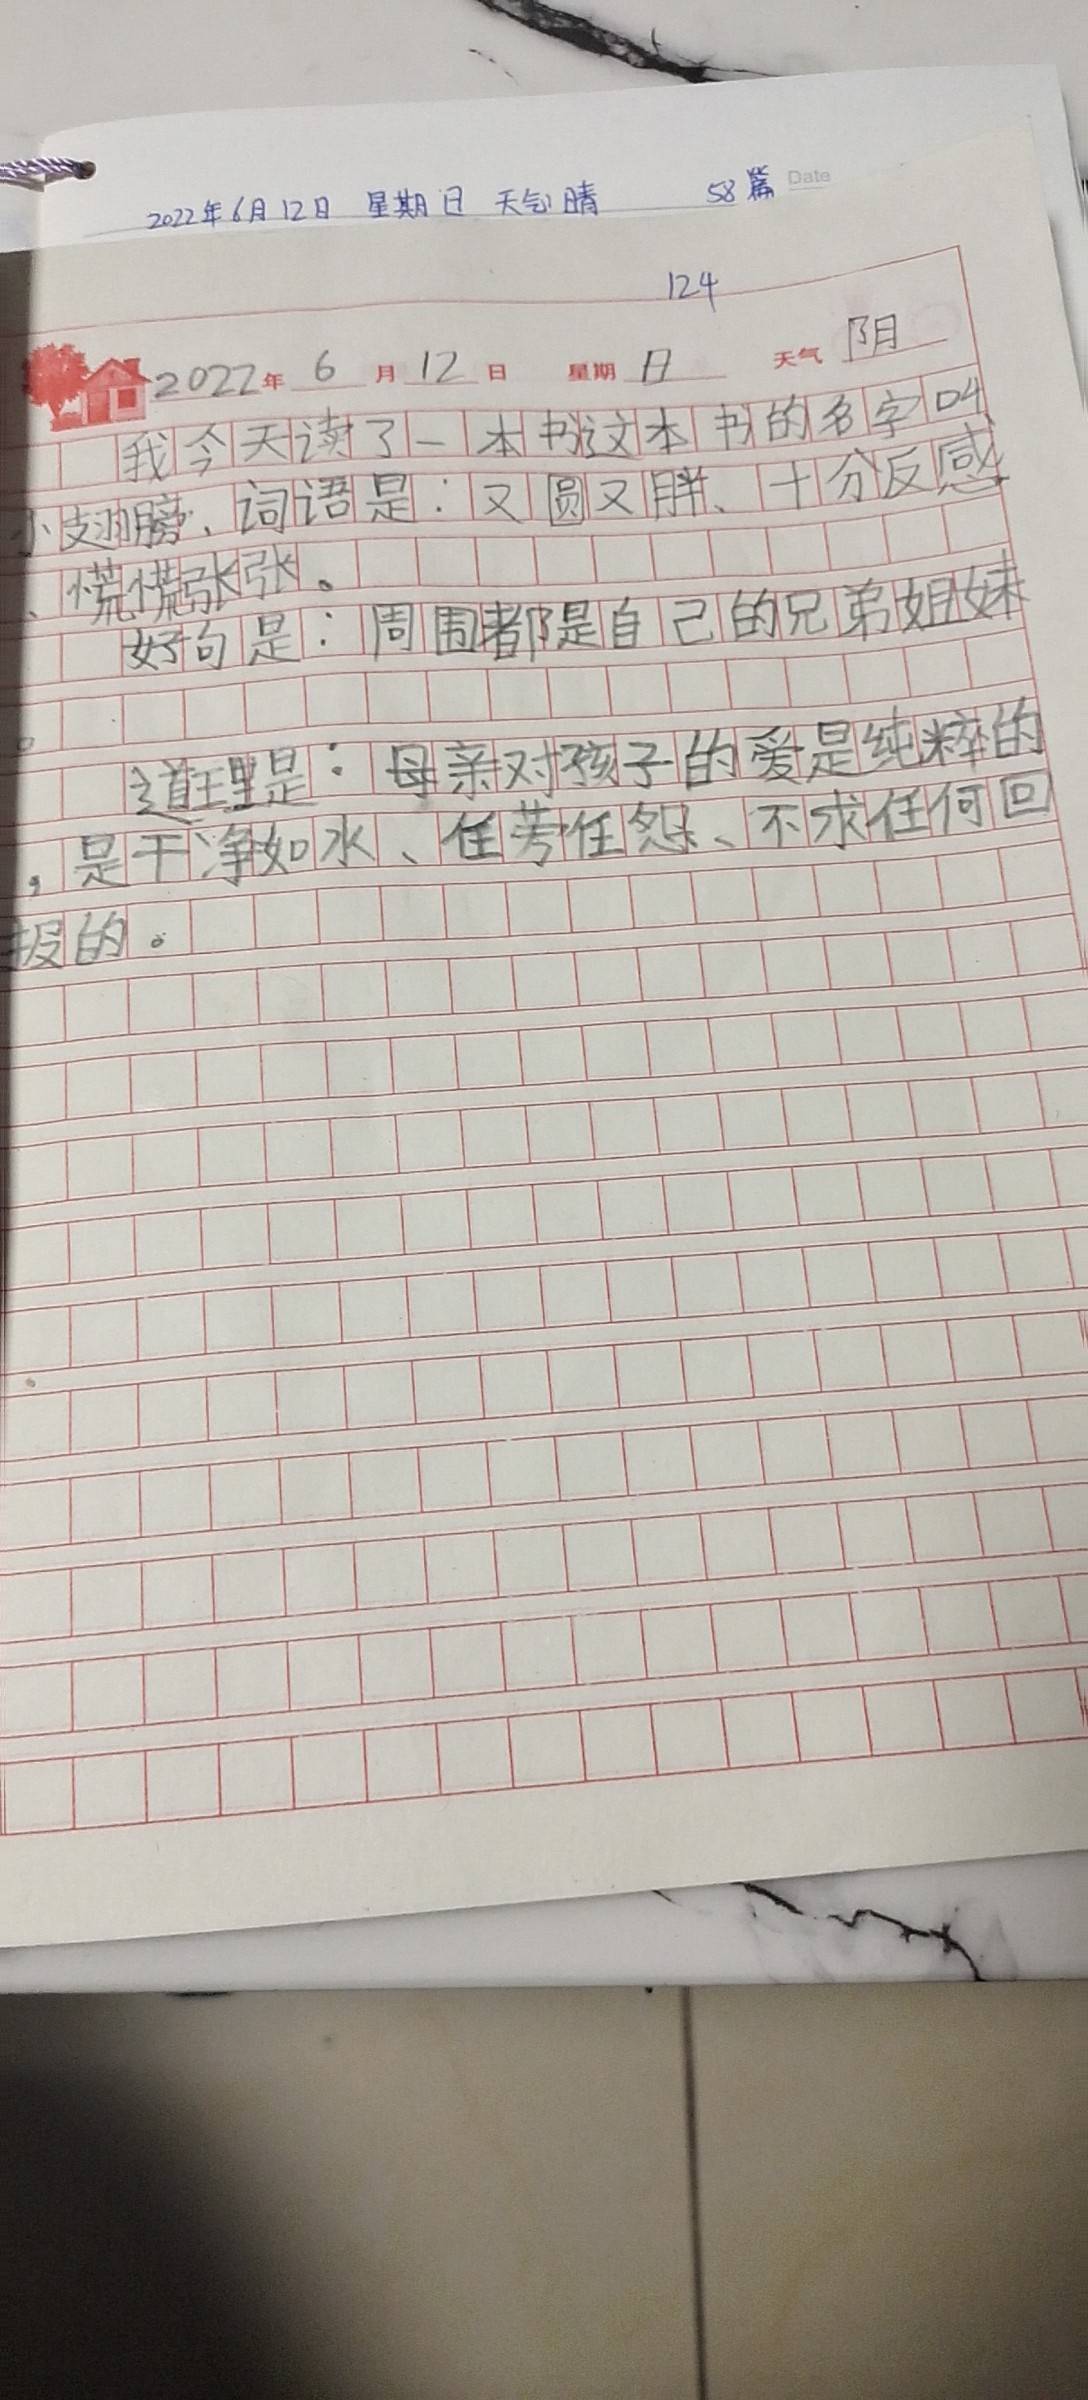 Date
2022年6月12日 星期日 天气晴 58篇
124
2022年 6月 12日 星期日 天气 阴
我今天读了一本书这本书的名字叫
小翅膀、词语是：又圆又胖、十分反感
、慌慌张张。
好句是：周围都是自己的兄弟姐妹
。
道理是：母亲对孩子的爱是纯粹的
，是干净如水、任劳任怨、不求任何回
报的。